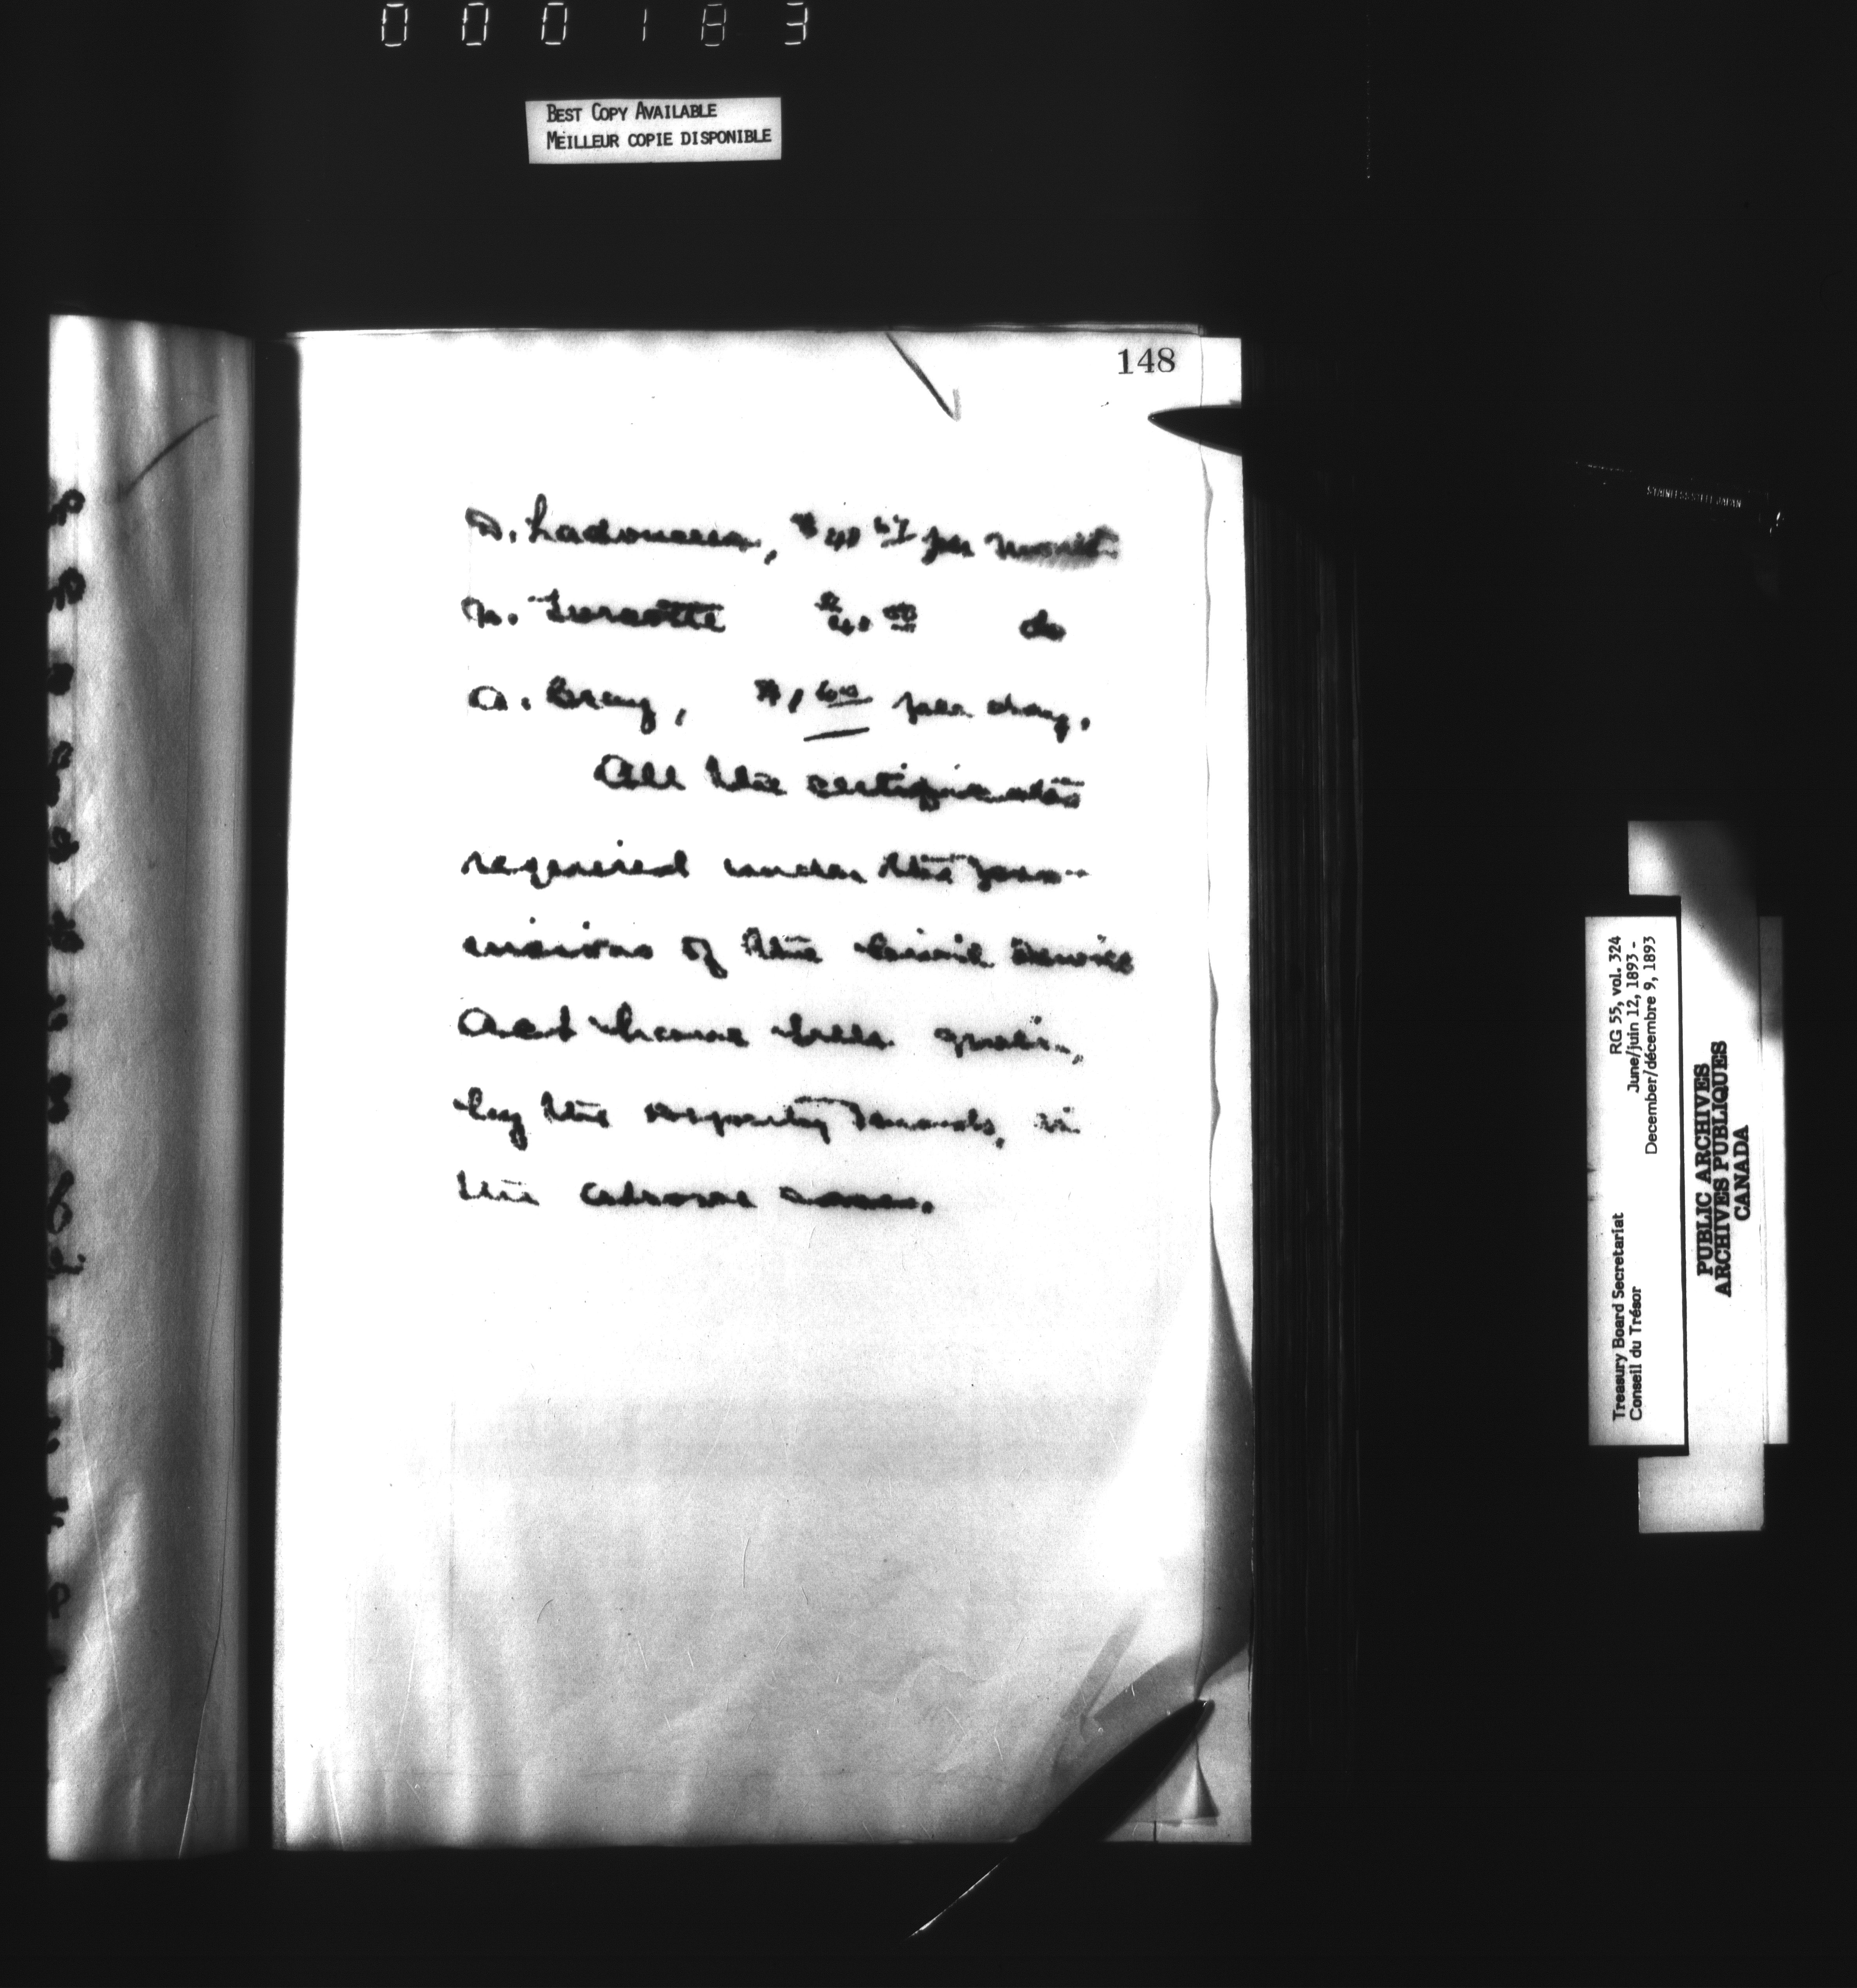 000183
BEST COPY AVAILABLE
MEILLEUR COPIE DISPONIBLE
148
D. Ladouceur, $40 67 per month
N. Turcotte $40 00 do
A. Bray, $1,600 per day.
All the certificates
required under the pro-
visions of the Civil Service
Act have been given,
by the deputy heads, in
the above cases.
RG 55, vol. 324
June/juin 12, 1893 -
December/décembre 9, 1893
Treasury Board Secretariat
Conseil du Trésor
PUBLIC ARCHIVES
ARCHIVES PUBLIQUES
CANADA